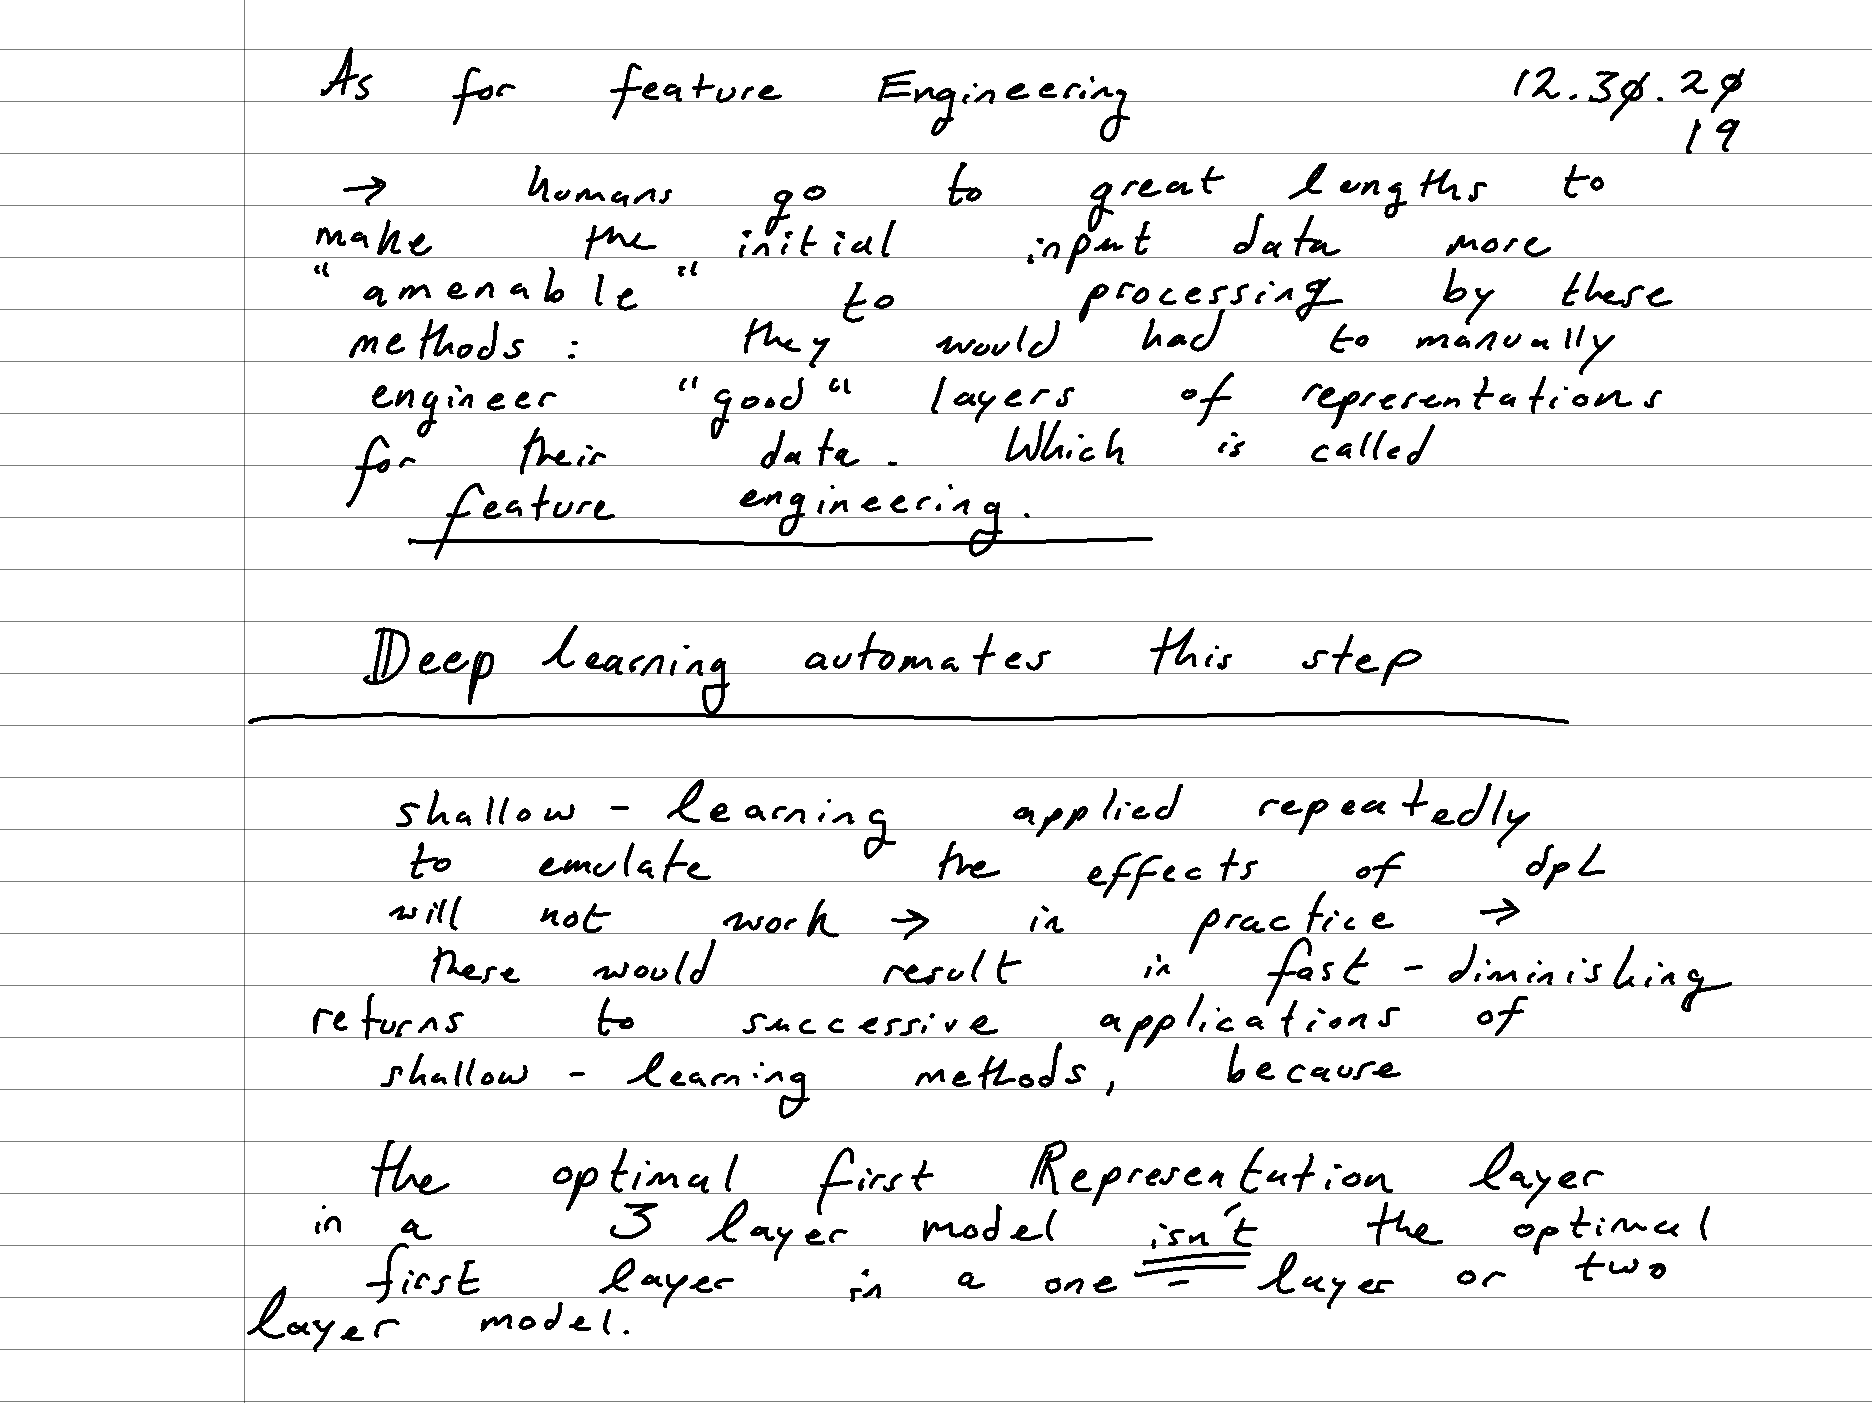 As for feature Engineering 12.30.20
19
→ humans go to great lengths to
make the initial input data more
"amenable" to processing by these
methods : they would had to manually
engineer "good" layers of representations
for their data. Which is called
feature engineering.
Deep learning automates this step
shallow - learning applied repeatedly
to emulate the effects of dpL
will not work → in practice →
these would result in fast - diminishing
returns to successive applications of
shallow - learning methods, because
the optimal first Representation layer
in a 3 layer model isn't the optimal
first layer in a one - layer or two
layer model.